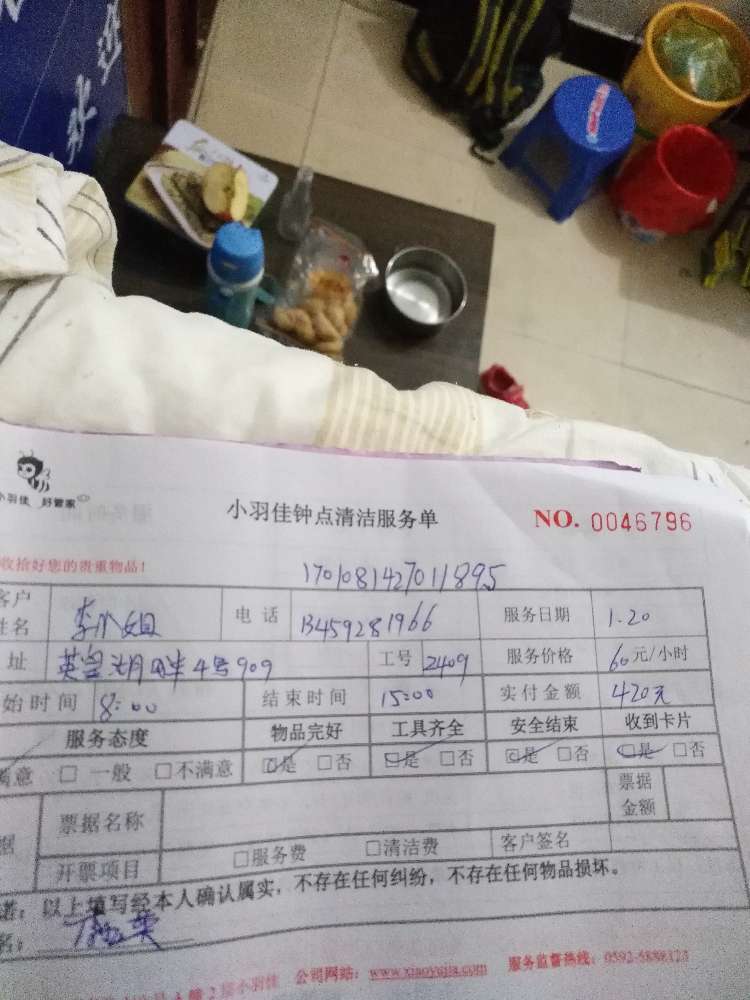 小羽佳 好管家
小羽佳钟点清洁服务单 NO. 0046796
收拾好您的贵重物品!
170108142701189 5
客户姓名 李小姐 电话 13459281966 服务日期 1.20
址 4号909 工号 2409 服务价格 60元/小时
始时间 8:00 结束时间 15:00 实付金额 420元
服务态度 物品完好 工具齐全 安全结束 收到卡片
满意 □ 一般 □不满意 □是 □否 □是 □否 □是 □否 □是 □否
据 票据名称 票据金额
开票项目 □服务费 □清洁费 客户签名
诺: 以上填写经本人确认属实,不存在任何纠纷,不存在任何物品损坏。
名:
2 小羽佳 公司网站: www.xiaoyujia.com 服务监督热线: 0592-5888123